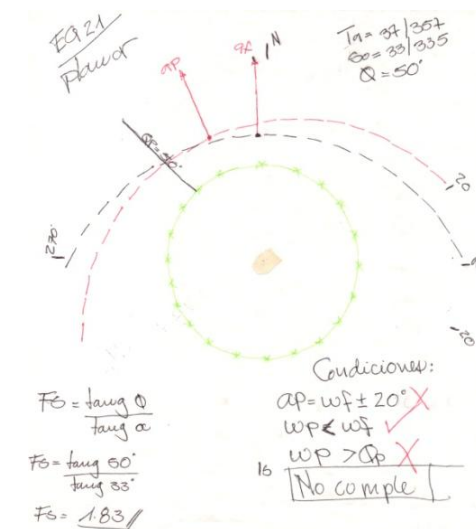 EG21
planar
N
Ta = 37/357
So = 33/335
Φ = 50°
αp
αf
270°
20
20
Condiciones:
αp = ωf ± 20° X
ωp < ωf ✓
ωp > Φp X
No comple
Fs = tang Φ
tang α
Fs = tang 50°
tang 33°
Fs = 1.83 //